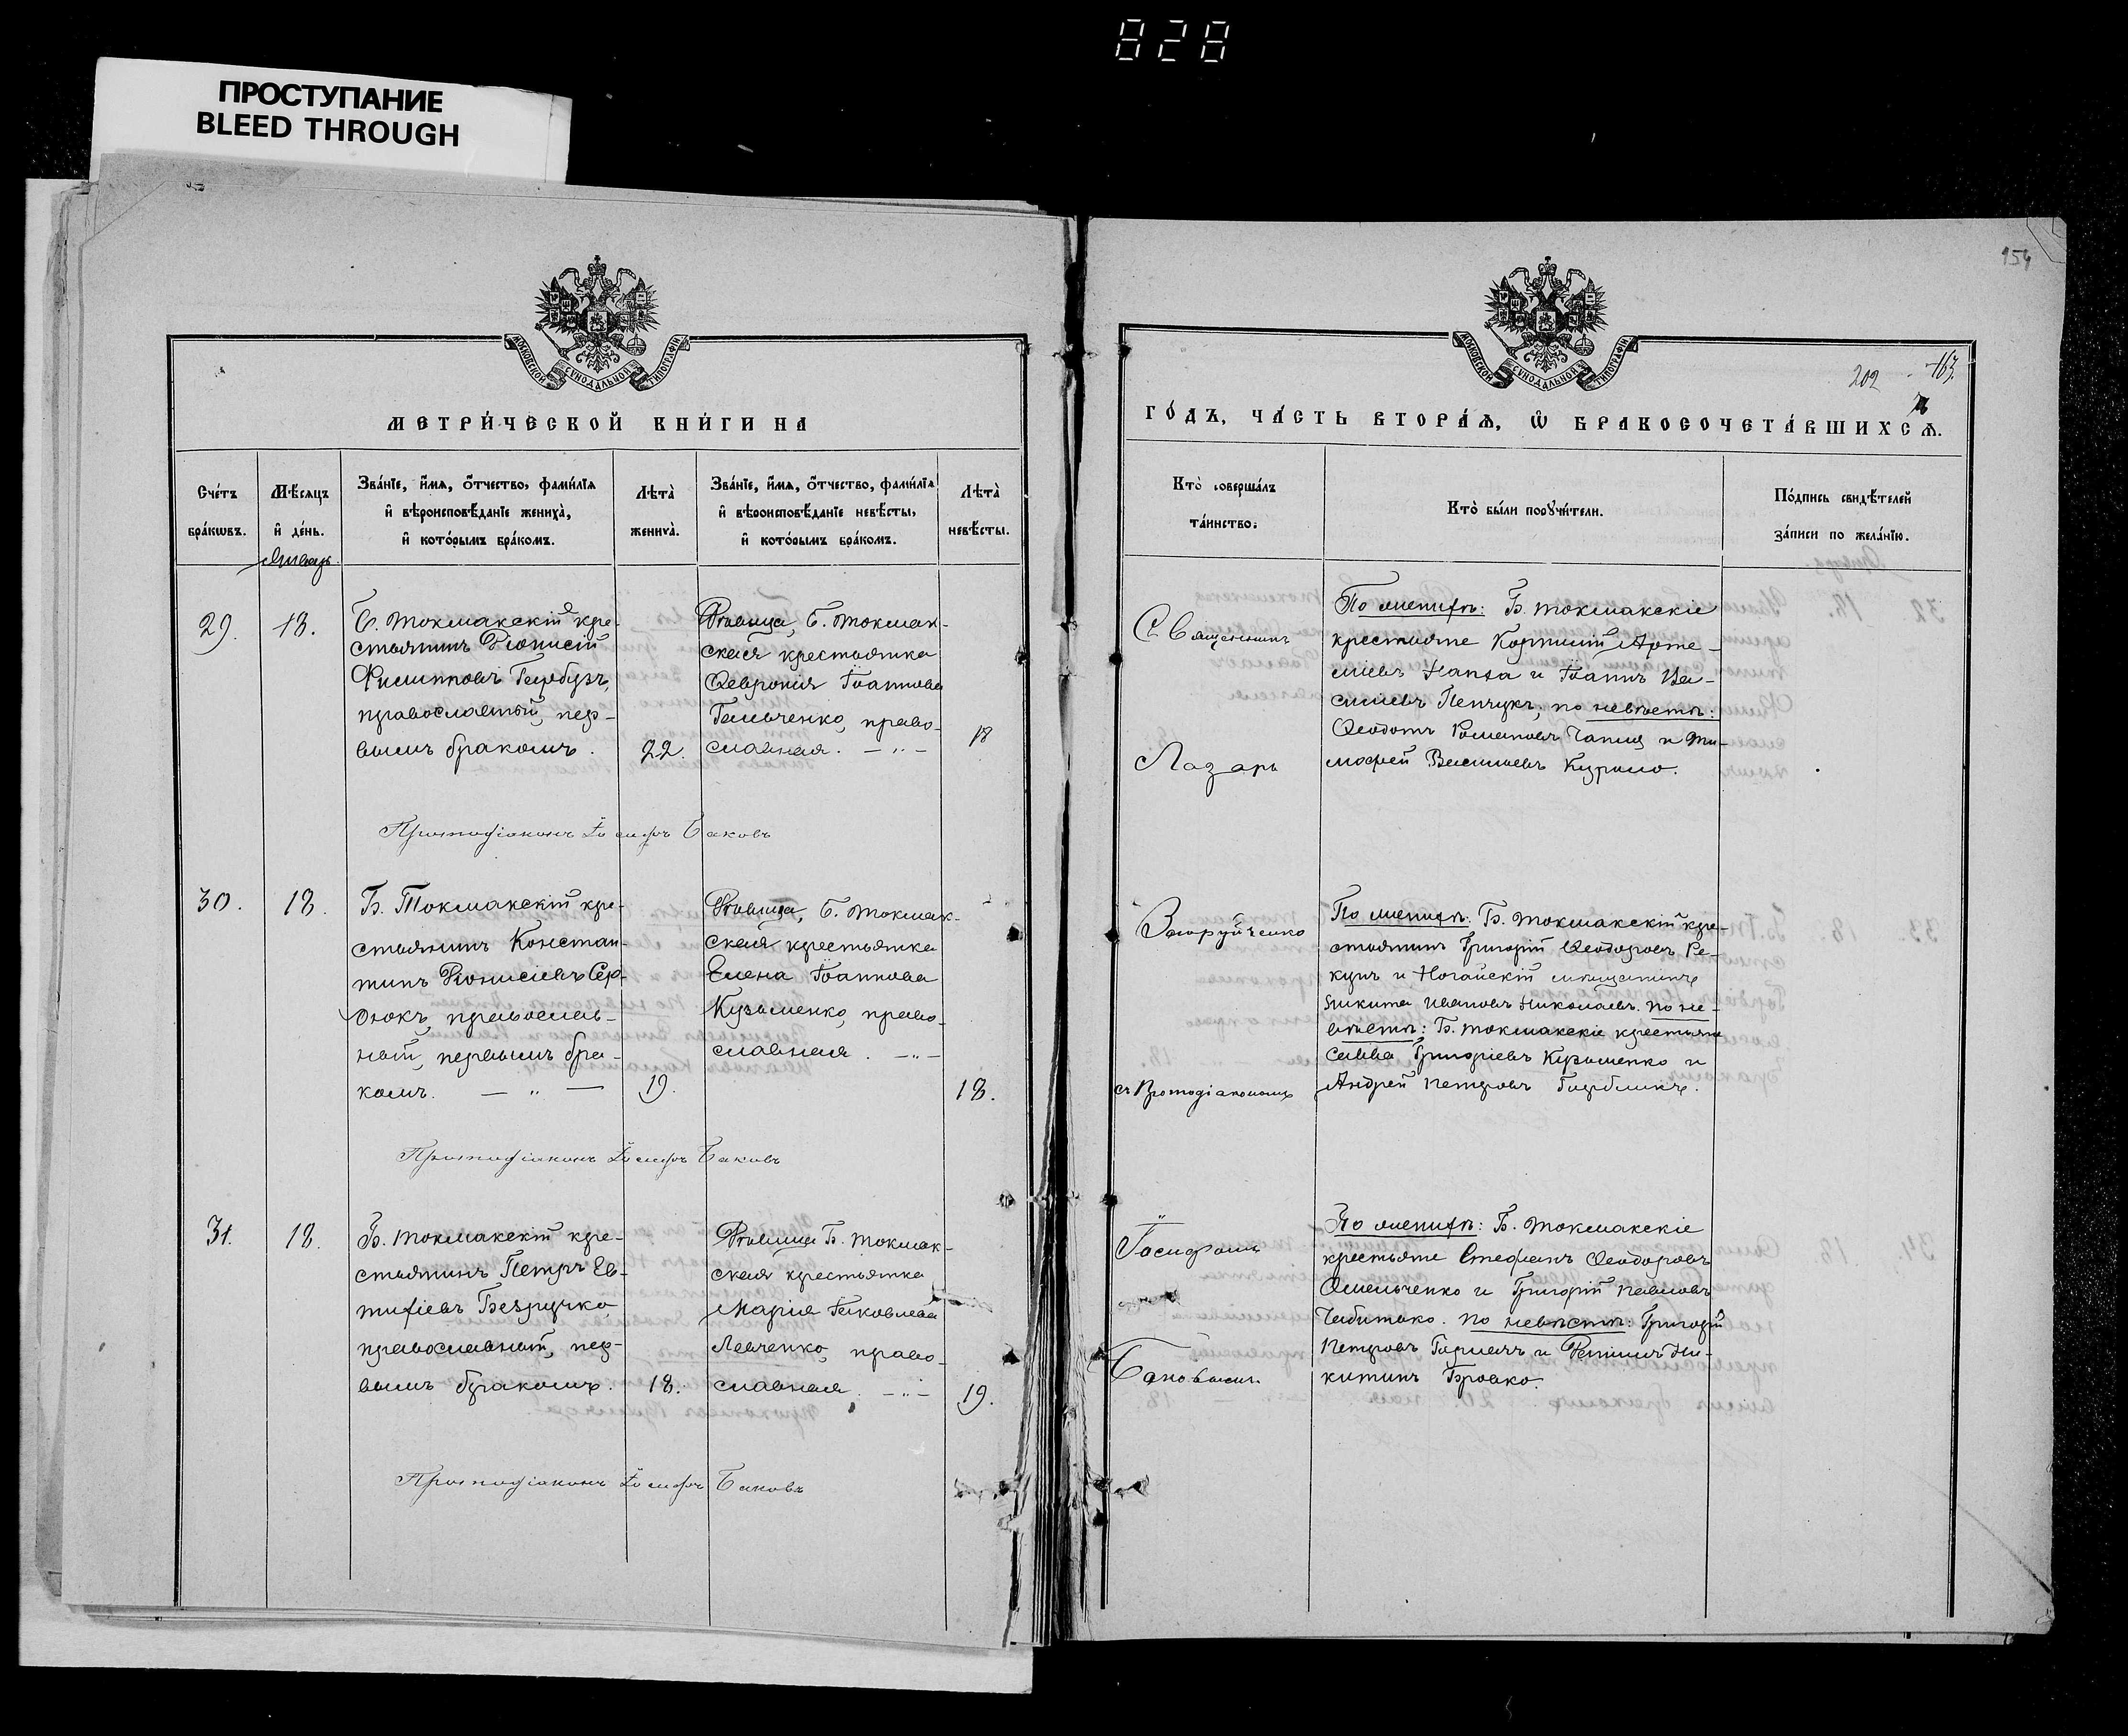 828
ПРОСТУПАНИЕ
BLEED THROUGH
154
МОСКОВСКОЙ СѴНОДАЛЬНОЙ ТИПОГРАФІИ
МЕТРИ́ЧЕСКОЙ КНИ́ГИ НА
Сче́тъ бра́кѡвъ.
Мѣ́сяцъ и҆ де́нь.
Зва́нїе, и҆́мѧ, ѻ҆́тчество, фами́лїѧ
и҆ вѣроисповѣ́данїе жениха̀,
и҆ кото́рымъ бра́комъ.
Лѣта̀ жениха̀.
Зва́нїе, и҆́мѧ, ѻ҆́тчество, фами́лїѧ
и҆ вѣроисповѣ́данїе невѣ́сты,
и҆ кото́рымъ бра́комъ.
Лѣта̀ невѣ́сты.
Январь
29.
18.
Б. Токмакскій кре-
стьянинъ Діонисій
Филипповъ
православный, пер-
вымъ бракомъ.
22.
Дѣвица, Б. Токмак-
ская крестьянка
Ѳевронія Іоаннова
Гальченко, право-
славная. — „ —
18
Протодіаконъ Іосифъ Баковъ
30.
18.
Б. Токмакскій кре-
стьянинъ Констан-
тинъ Діонисіевъ Сер-
дюкъ, православ-
ный, первымъ бра-
комъ. — „ —
19.
Дѣвица, Б. Токмак-
ская крестьянка
Елена Іоаннова
Кузьменко, право-
славная. — „ —
18.
Протодіаконъ Іосифъ Баковъ
31.
18.
Б. Токмакскій кре-
стьянинъ Петръ Ев-
тихіевъ Безручко
православный, пер-
вымъ бракомъ.
18.
Дѣвица Б. Токмак-
ская крестьянка
Марія Іаковлева
Левченко, право-
славная. — „ —
19.
Протодіаконъ Іосифъ Баковъ
МОСКОВСКОЙ СѴНОДАЛЬНОЙ ТИПОГРАФІИ
202
163.
ГО́ДЪ, ЧА́СТЬ ВТОРА́Ѧ, Ѡ҆ БРАКОСОЧЕТА́ВШИХСѦ.
Кто̀ соверша́лъ
та́инство.
Кто̀ бы́ли порꙋчи́тели.
По́дпись свидѣ́телей
за́писи по жела́нїю.
Священникъ
Лазарь
Загоруйченко
съ Протодіакономъ
Іосифомъ
Баковымъ
По женихѣ: Б. Токмакскіе
крестьяне Корнилій Арте-
міевъ Напха и Іоаннъ Ва-
сильевъ Пенчукъ, по невѣстѣ:
Ѳеодотъ Романовъ Чапля и Ти-
мофей Васильевъ Курило.
По женихѣ: Б. Токмакскій кре-
стьянинъ Григорій Ѳеодоровъ Ре-
кунъ и Ногайскій мѣщанинъ
Никита Ивановъ Николаевъ. По не-
вѣстѣ: Б. Токмакскіе крестьяне
Савва Григоріевъ Кузьменко и
Андрей Петровъ
По женихѣ: Б. Токмакскіе
крестьяне Стефанъ Ѳеодоровъ
Омельченко и Григорій Павловъ
По невѣстѣ: Григорій
Петровъ и Филиппъ Ни-
китинъ Бровко.